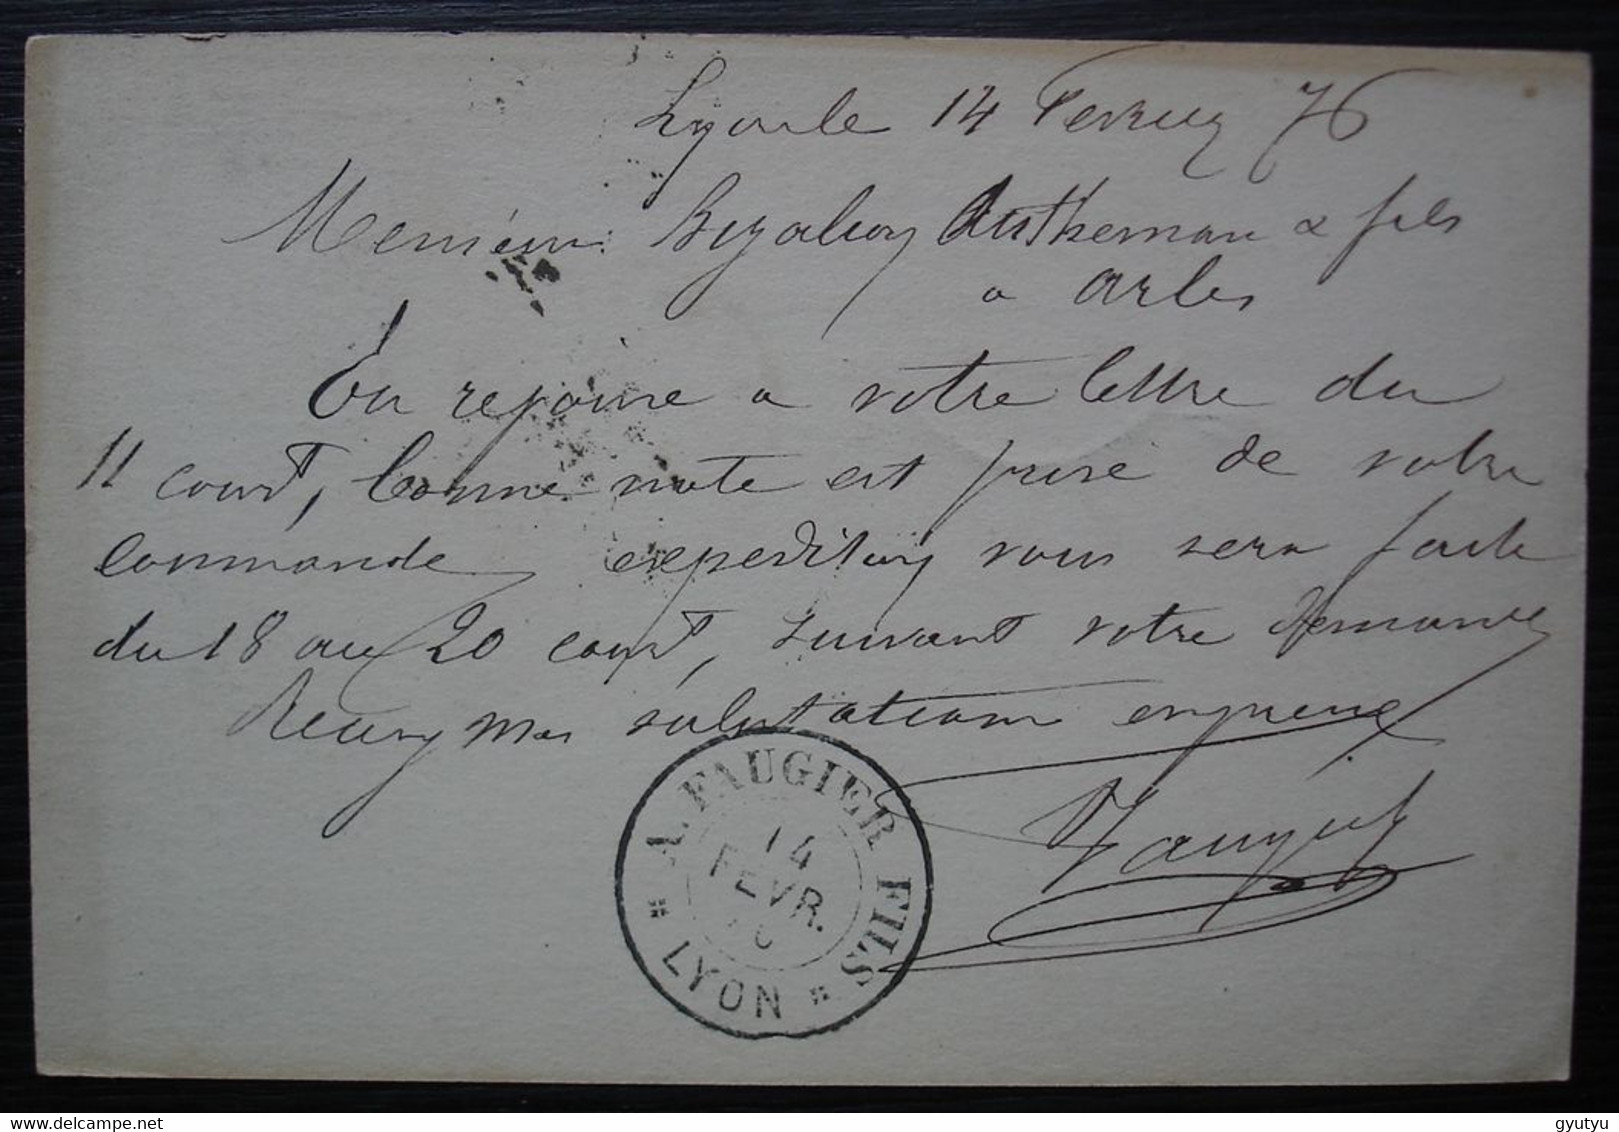 Lyon le 14 Fevrier 76
Messieurs Bizalion Autheman & fils
a Arles
En reponse a votre lettre du
11 court, bonne note est prise de votre
commande expedition vous sera faite
du 18 au 20 court, suivant votre demande
Recevez mes salutations empressées
A. FAUGIER FILS
14
FEVR.
* LYON *
delcampe.net
gyutyu